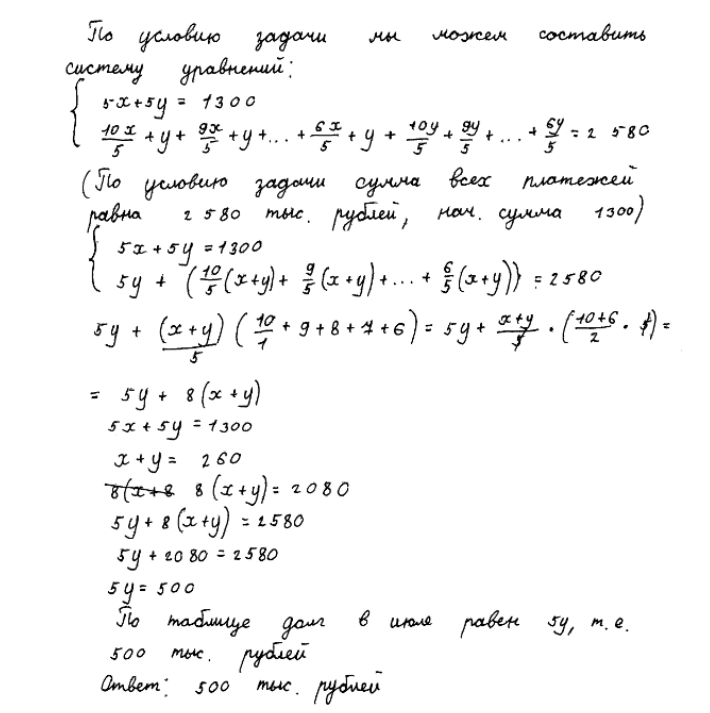 По условию задачи мы можем составить
систему уравнений:
5x+5y = 1300
10x/5 + y + 9x/5 + y + ... + 6x/5 + y + 10y/5 + 9y/5 + ... + 6y/5 = 2 580
(По условию задачи сумма всех платежей
равна 2 580 тыс. рублей, нач. сумма 1300)
5x + 5y = 1300
5y + (10/5(x+y) + 9/5(x+y) + ... + 6/5(x+y)) = 2580
5y + (x+y)/5 (10/1 + 9 + 8 + 7 + 6) = 5y + x+y/5 · (10+6/2 · 5) =
= 5y + 8(x+y)
5x + 5y = 1300
x + y = 260
8(x+8 8(x+y) = 2080
5y + 8(x+y) = 2580
5y + 2080 = 2580
5y = 500
По таблице долг в июле равен 5y, т.е.
500 тыс. рублей
Ответ: 500 тыс. рублей